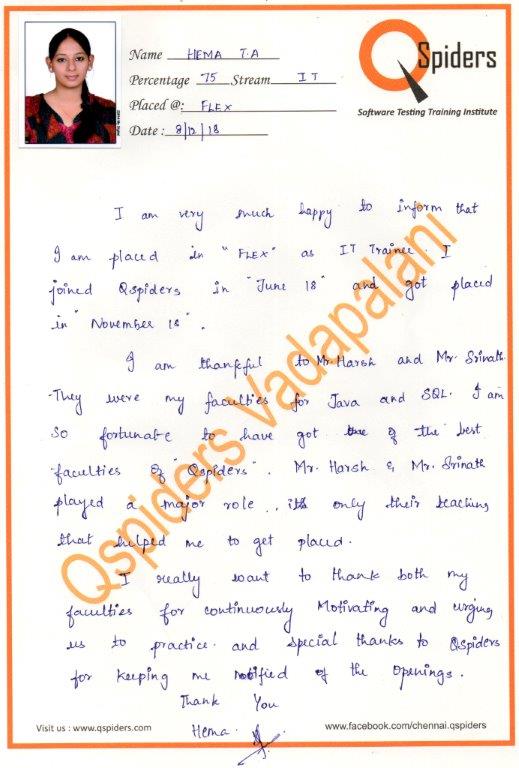 Name HEMA T.A
Percentage 75 Stream IT
Placed @: FLEX
Date : 8/12/18
QSpiders
Software Testing Training Institute
I am very much happy to inform that
I am placed in "FLEX" as IT Trainee. I
joined Qspiders in "June 18" and got placed
in "November 18".
I am thankful to Mr. Harsh and Mr. Srinath.
They were my faculties for Java and SQL. I am
so fortunate to have got one of the best
faculties of "Qspiders". Mr. Harsh & Mr. Srinath
played a major role .. its only their teaching
that helped me to get placed.
I really want to thank both my
faculties for continuously Motivating and urging
us to practice. and special thanks to QSpiders
for keeping me notified of the openings.
Thank You
Hema.
Qspiders Vadapalani
Visit us : www.qspiders.com
www.facebook.com/chennai.qspiders